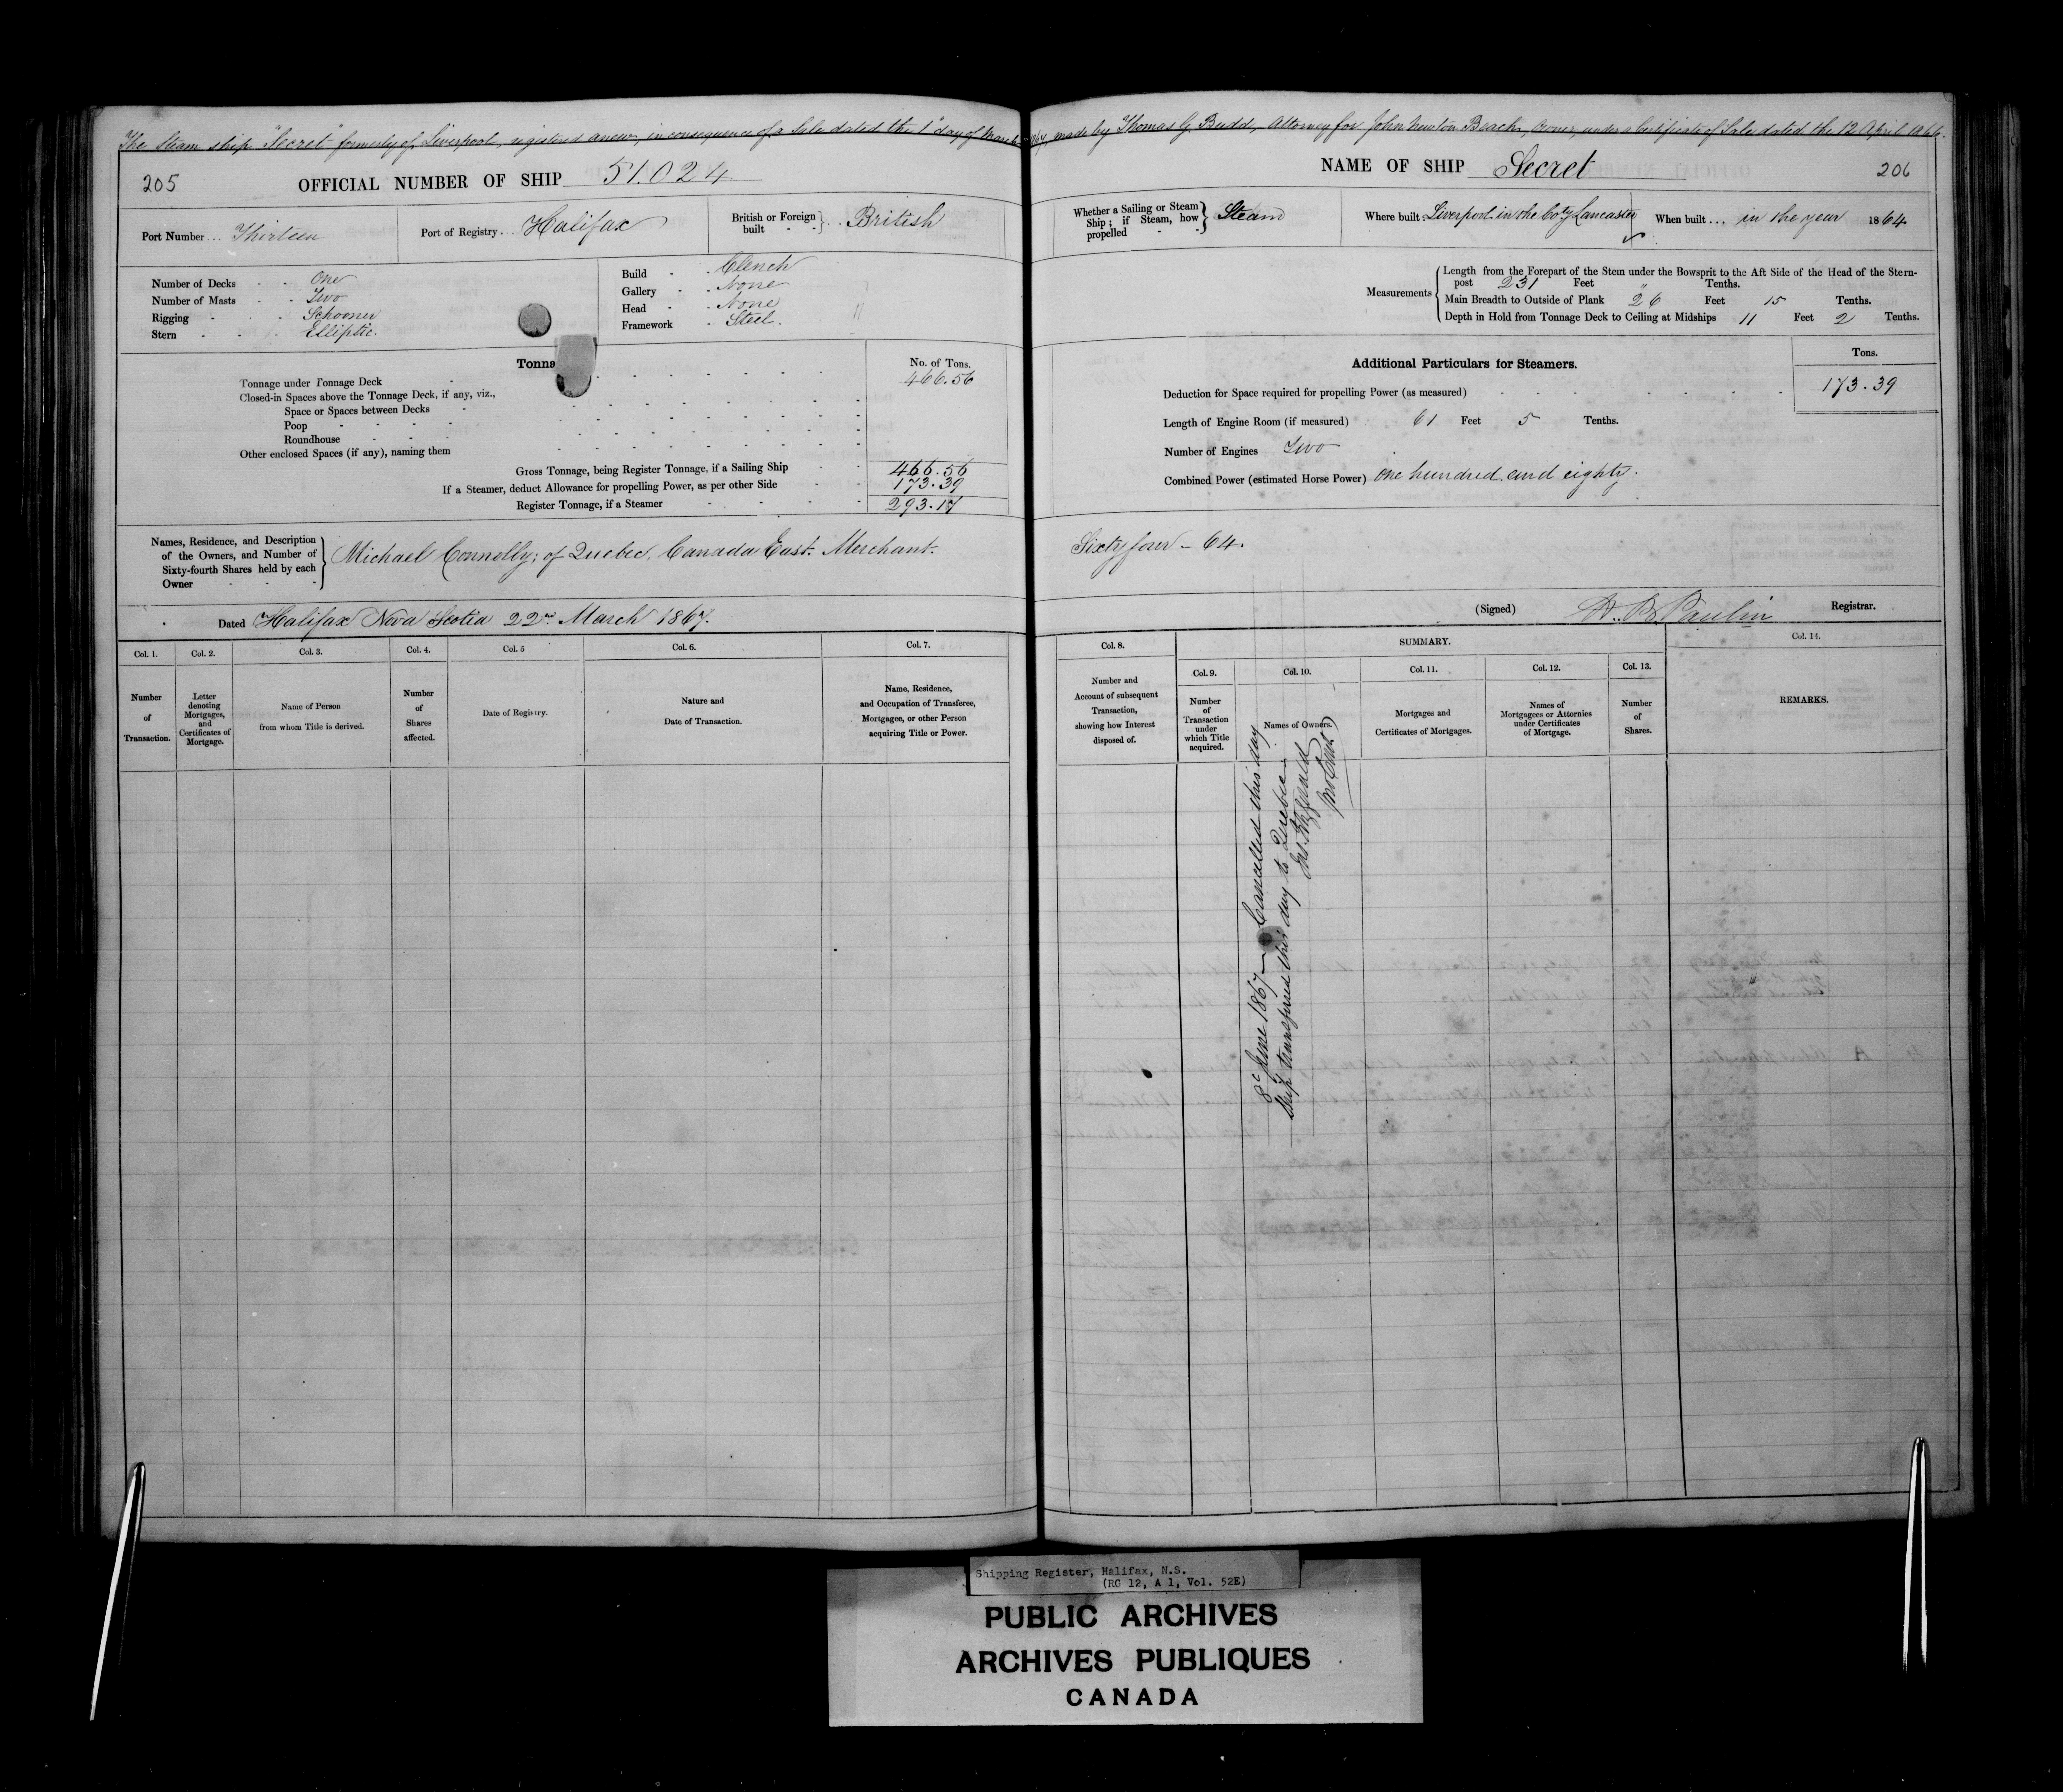 The Steam ship "Secret" formerly of Liverpool, registered anew, in consequence of a Sale dated the 1st day of March 1867, made by Thomas G. Budd, Attorney for John Newton Beach, Owner, under a Certificate of Sale dated the 12 April 1866.
205
OFFICIAL NUMBER OF SHIP 51.024
Port Number ... Thirteen
Port of Registry ... Halifax
British or Foreign built - - } .. British
Number of Decks - - One
Number of Masts - - Two
Rigging - - - Schooner
Stern - - - Elliptic.
Build - - Clench
Gallery - - None
Head - - None
Framework - Steel.
Tonna
No. of Tons.
Tonnage under Tonnage Deck - 466.56
Closed-in Spaces above the Tonnage Deck, if any, viz.,
Space or Spaces between Decks
Poop
Roundhouse
Other enclosed Spaces (if any), naming them
Gross Tonnage, being Register Tonnage, if a Sailing Ship 466.56
If a Steamer, deduct Allowance for propelling Power, as per other Side 173.39
Register Tonnage, if a Steamer 293.17
Names, Residence, and Description
of the Owners, and Number of
Sixty-fourth Shares held by each
Owner - - -
Michael Connolly; of Quebec, Canada East. Merchant.
Dated Halifax Nova Scotia 22nd March 1867.
Col. 1.
Number of Transaction.
Col. 2.
Letter denoting Mortgages, and Certificates of Mortgage.
Col. 3.
Name of Person from whom Title is derived.
Col. 4.
Number of Shares affected.
Col. 5
Date of Registry.
Col. 6.
Nature and Date of Transaction.
Col. 7.
Name, Residence, and Occupation of Transferee, Mortgagee, or other Person acquiring Title or Power.
NAME OF SHIP Secret
206
Whether a Sailing or Steam Ship; if Steam, how propelled - - } Steam
Where built Liverpool in the Coty Lancaster
When built ... in the year 1864
Measurements
Length from the Forepart of the Stem under the Bowsprit to the Aft Side of the Head of the Stern-
post 231 Feet " Tenths.
Main Breadth to Outside of Plank 26 Feet 15 Tenths.
Depth in Hold from Tonnage Deck to Ceiling at Midships 11 Feet 2 Tenths.
Additional Particulars for Steamers.
Tons.
Deduction for Space required for propelling Power (as measured) 173.39
Length of Engine Room (if measured) 61 Feet 5 Tenths.
Number of Engines Two
Combined Power (estimated Horse Power) One hundred and eighty.
Sixty four - 64.
(Signed) Paulin Registrar.
Col. 8.
Number and Account of subsequent Transaction, showing how Interest disposed of.
SUMMARY.
Col. 9.
Number of Transaction under which Title acquired.
Col. 10.
Names of Owners.
Col. 11.
Mortgages and Certificates of Mortgages.
Col. 12.
Names of Mortgagees or Attornies under Certificates of Mortgage.
Col. 13.
Number of Shares.
Col. 14.
REMARKS.
8th June 1867 - Cancelled this day
Ship transferred this day to Quebec -
Fitzgerald
Shipping Register, Halifax, N.S.
(RG 12, A 1, Vol. 52E)
PUBLIC ARCHIVES
ARCHIVES PUBLIQUES
CANADA